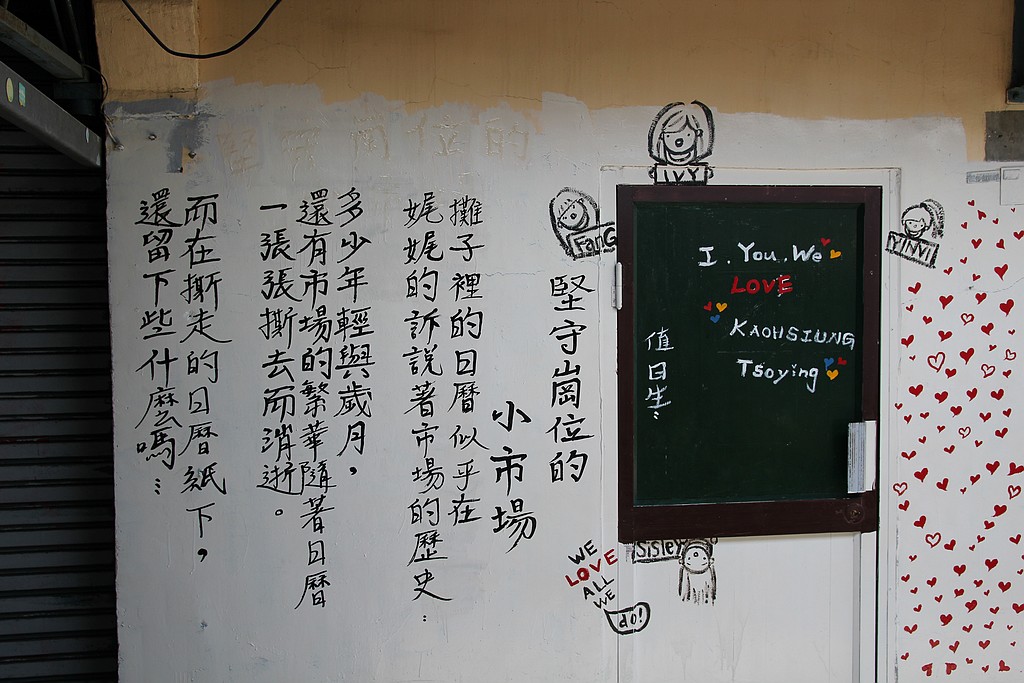 堅守崗位的
小市場
攤子裡的日曆似乎在
娓娓的訴說著市場的歷史：
多少年輕與歲月，
還有市場的繁華隨著日曆
一張張撕去而消逝。
而在撕走的日曆紙下，
還留下些什麼嗎…
IVY
FanG
YINVI
Sisley
I . You . We
LOVE
KAOHSIUNG
Tsoying
值日生：
WE
LOVE
ALL
WE
do!